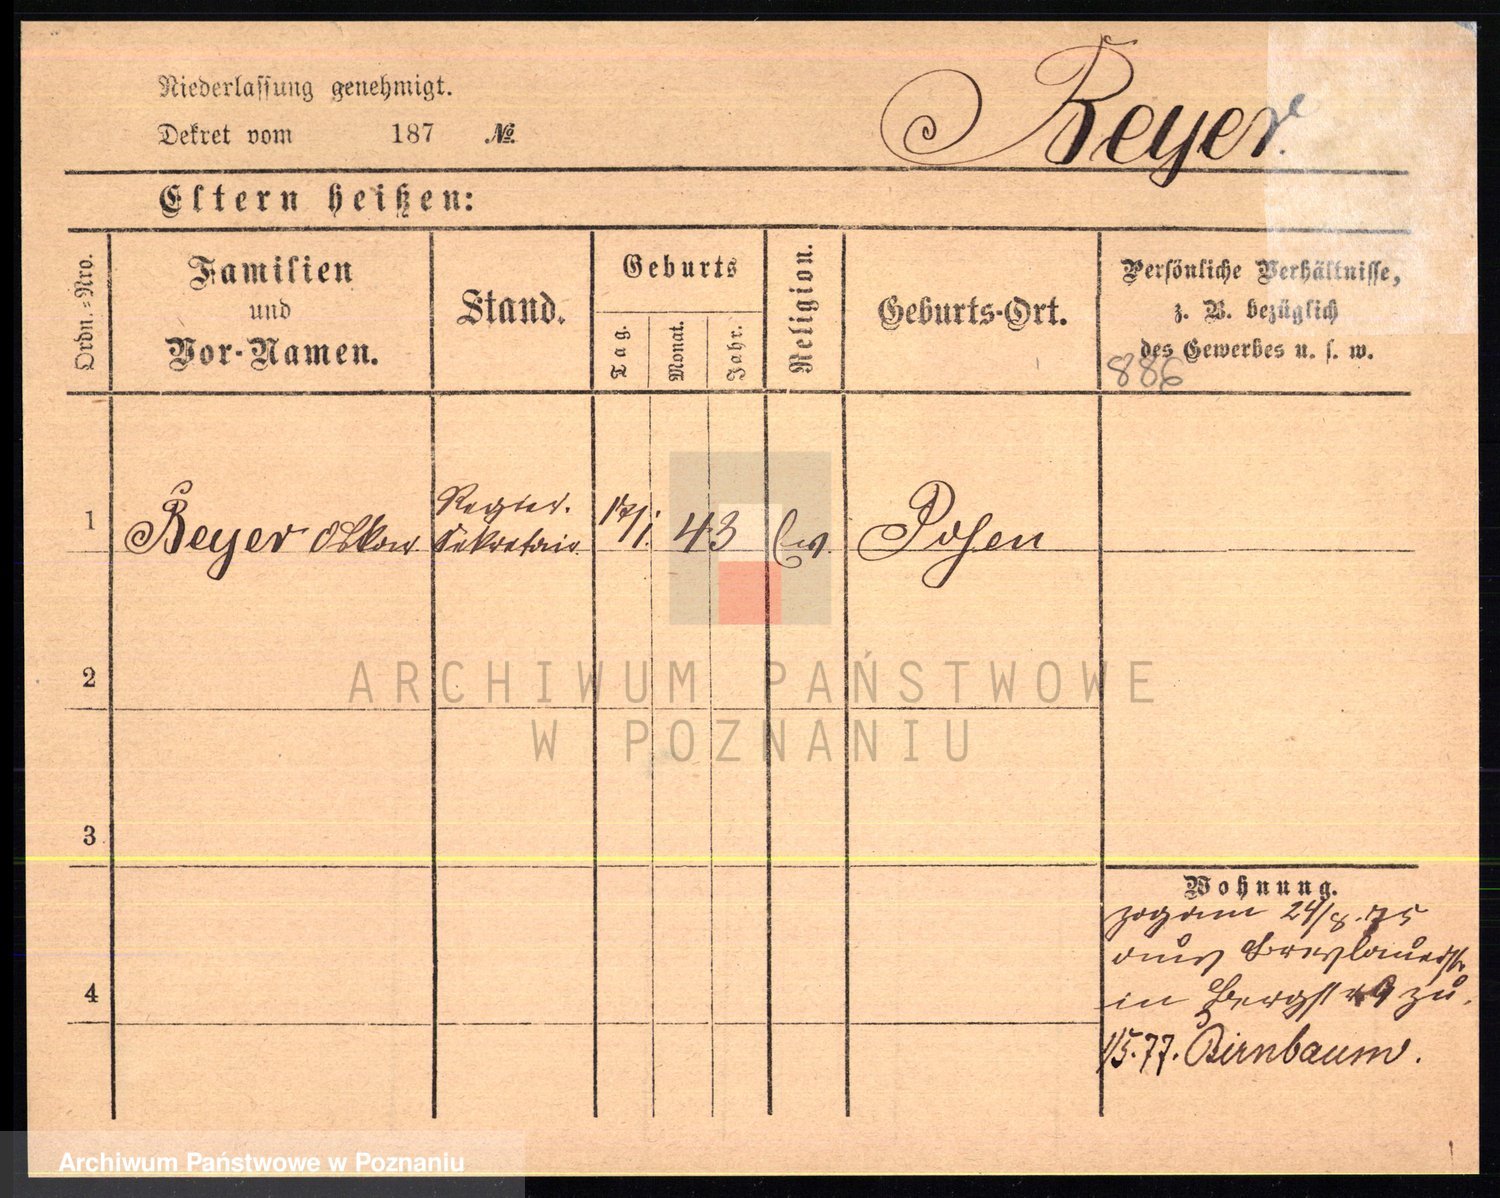 Niederlassung genehmigt.
Dekret vom 187 №.
Beyer.
Eltern heißen:
Ordn.-Nro.
Familien
und
Vor-Namen.
Stand.
Geburts
Tag.
Monat.
Jahr.
Religion.
Geburts-Ort.
Persönliche Verhältnisse,
z. B. bezüglich
des Gewerbes u. s. w.
886
1 Beyer Oskar Regier. Sekretair 17/1. 43 Ev. Posen
2
3
4
Wohnung.
zog am 24/8.75
aus Breslauerstr
in Bergstr 9 zu.
1/5.77. Birnbaum.
ARCHIWUM PAŃSTWOWE
W POZNANIU
Archiwum Państwowe w Poznaniu